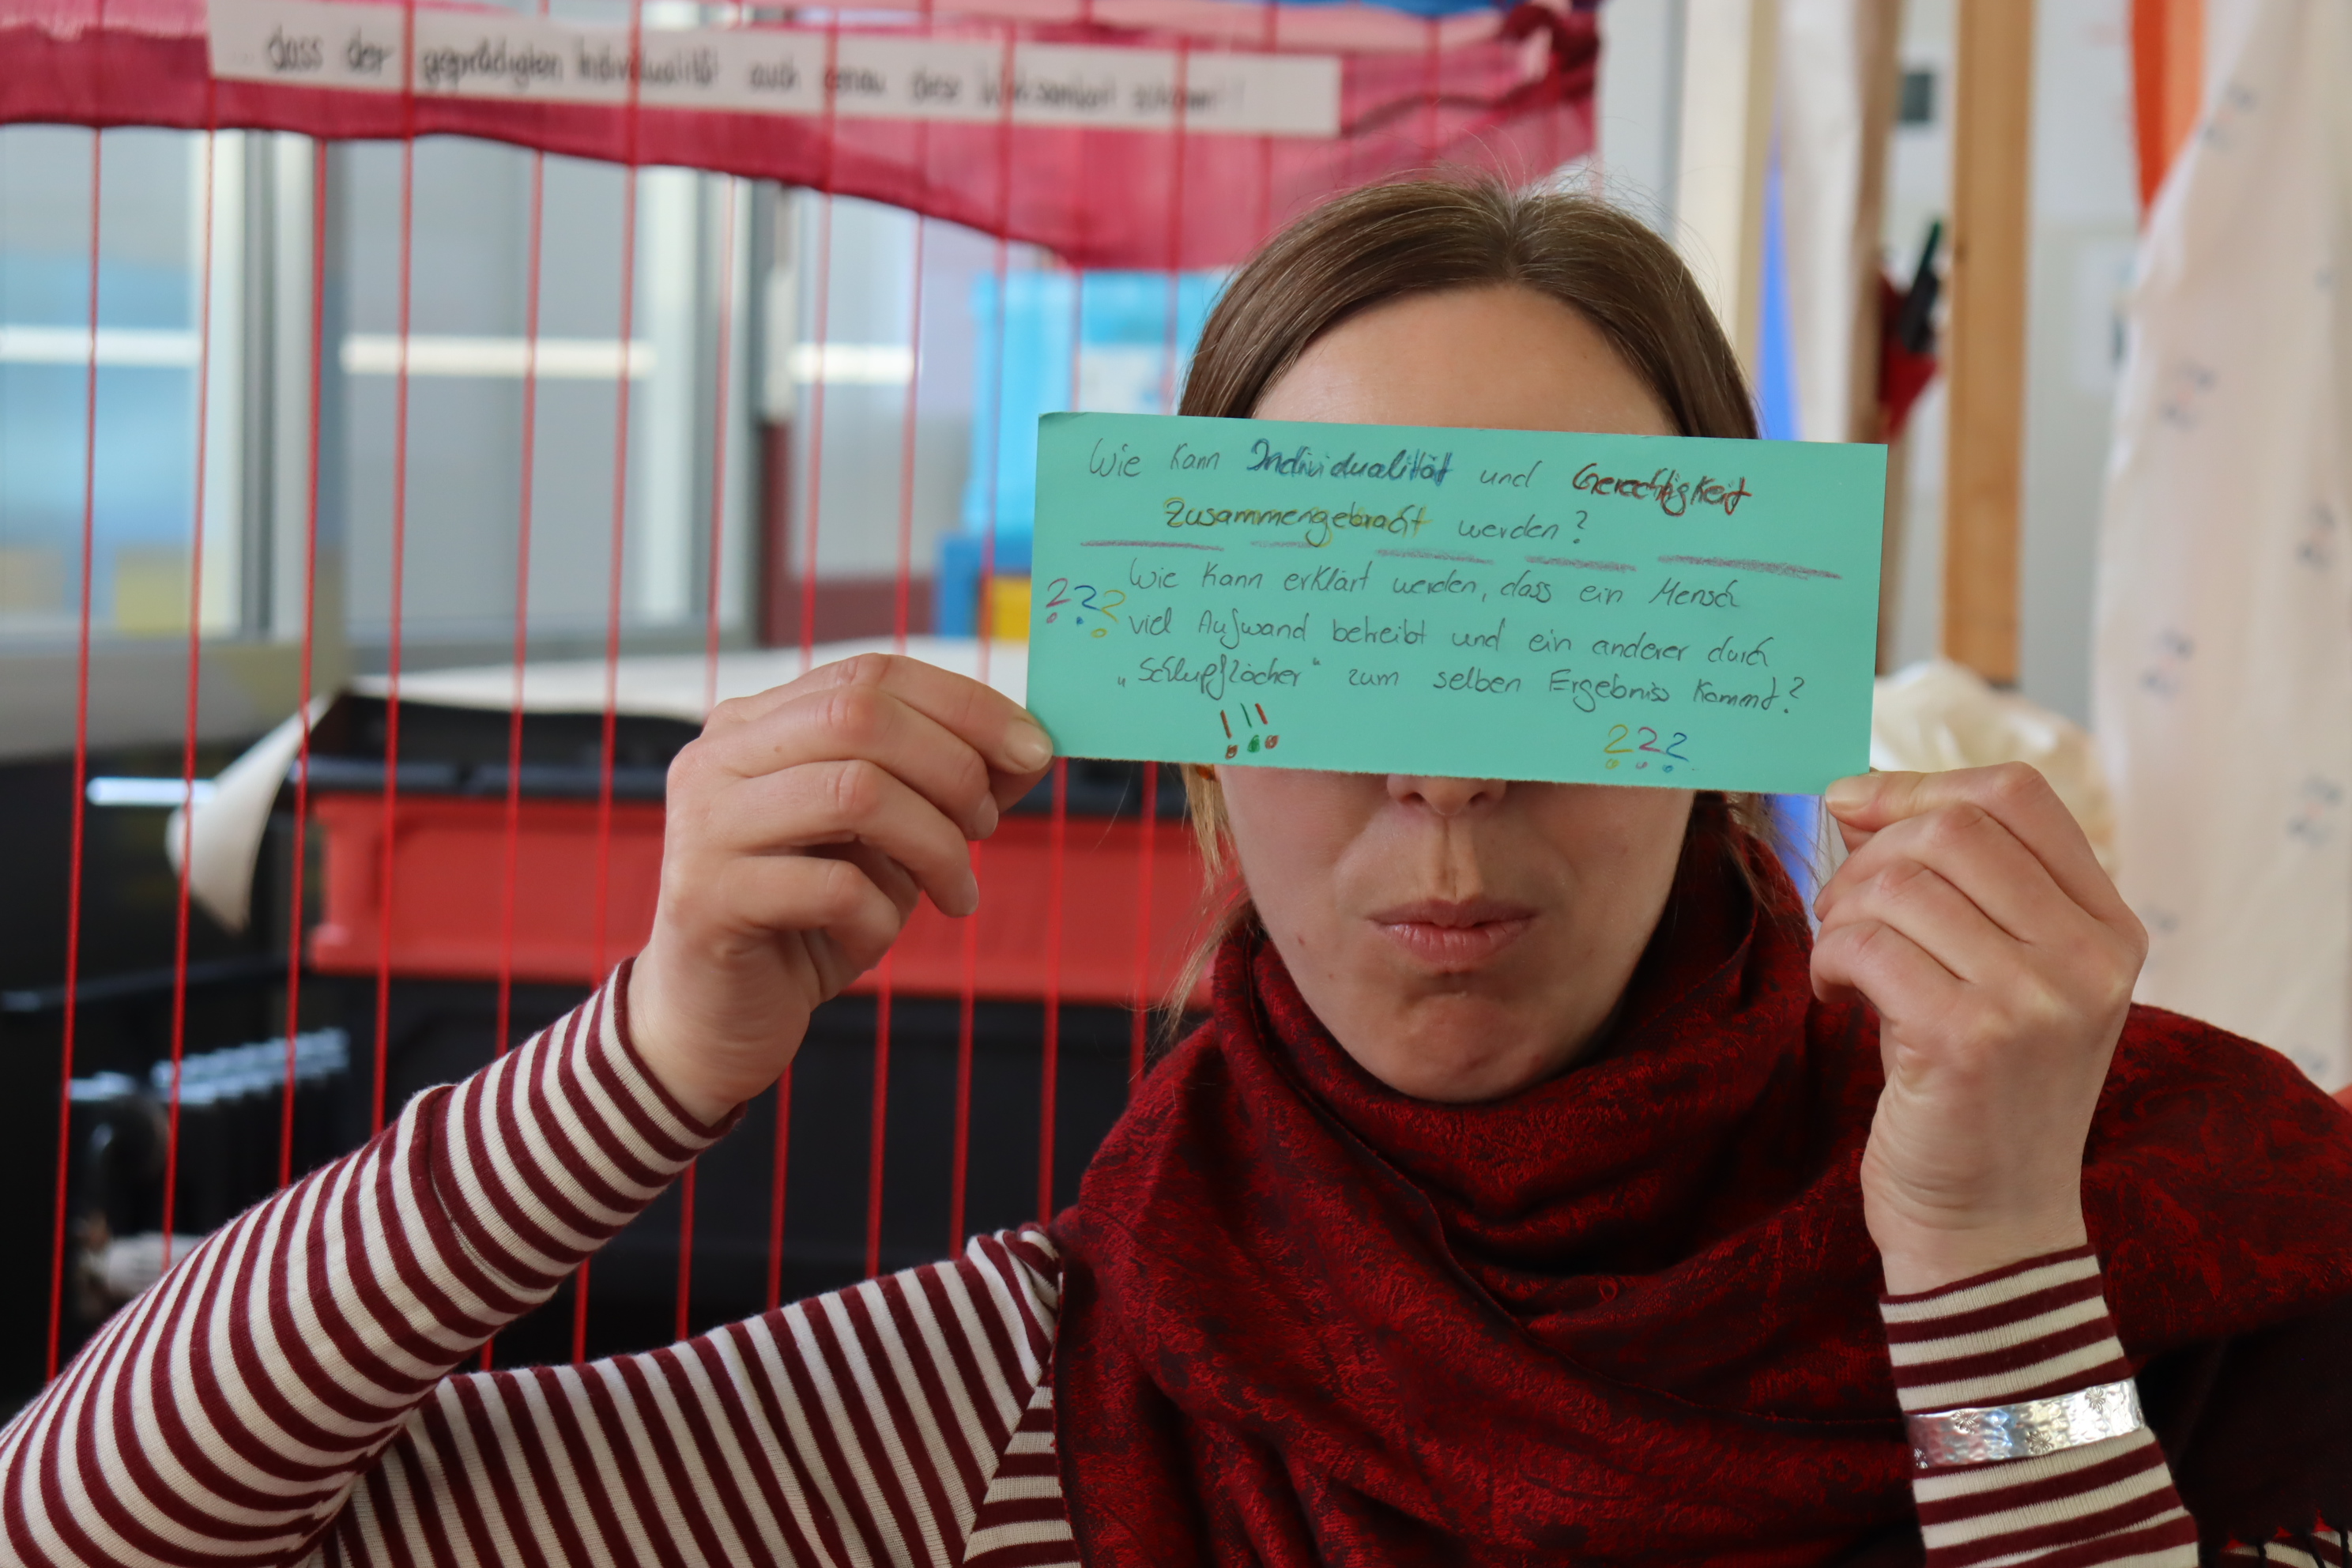 dass der gepredigten Individualität auch genau diese
Wie kann Individualität und Gerechtigkeit
Zusammengebracht werden?
??? Wie kann erklärt werden, dass ein Mensch
viel Aufwand betreibt und ein anderer durch
„Schlupflöcher“ zum selben Ergebniss kommt?
!!! ???